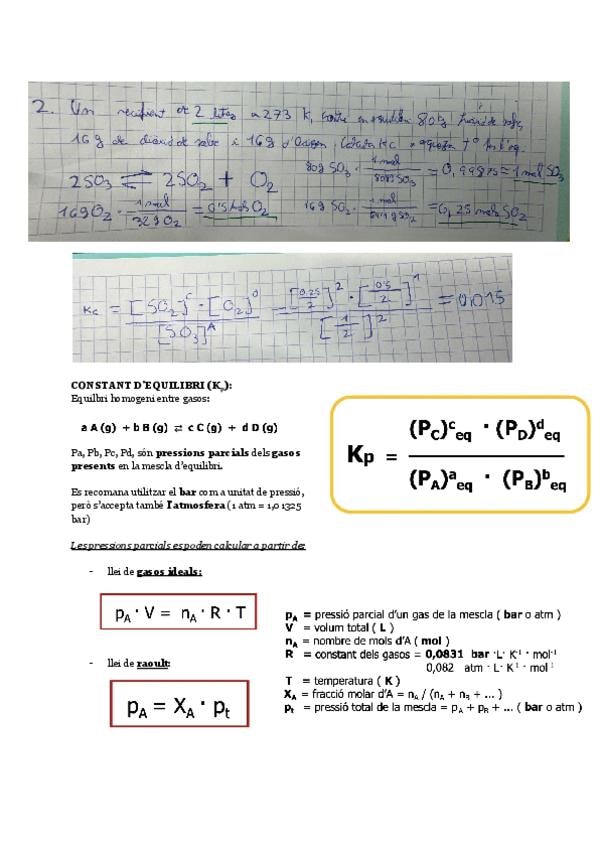 2. Un recipient de 2 litres a 273 K, conté en equilibri 80g triòxid de sofre,
16 g de diòxid de sofre i 16g d'Oxigen. Calcula Kc a aquesta Tº
2SO₃ ⇌ 2SO₂ + O₂
80g SO₃ · 1 mol / SO₃ = 0,99875 = 1 mol SO₃
16g O₂ · 1 mol / 32g O₂ = 0'5 mols O₂
16g SO₂ · 1 mol / SO₂ = 0,25 mols SO₂
Kc = [SO₂]ᶜ · [O₂]ᴰ / [SO₃]ᴬ = [0.25/2]² · [0'5/2]¹ / [1/2]² = 0,015
CONSTANT D'EQUILIBRI (Kₚ):
Equilbri homogeni entre gasos:
a A (g) + b B (g) ⇌ c C (g) + d D (g)
Pa, Pb, Pc, Pd, són pressions parcials dels gasos
presents en la mescla d'equilibri.
Es recomana utilitzar el bar com a unitat de pressió,
però s'accepta també l'atmosfera (1 atm = 1,01325
bar)
Kp = (P_C)ᶜeq · (P_D)ᵈeq / (P_A)ᵃeq · (P_B)ᵇeq
Les pressions parcials es poden calcular a partir de:
- llei de gasos ideals:
p_A · V = n_A · R · T
- llei de raoult:
p_A = X_A · p_t
p_A = pressió parcial d'un gas de la mescla ( bar o atm )
V = volum total ( L )
n_A = nombre de mols d'A ( mol )
R = constant dels gasos = 0,0831 bar ·L· K⁻¹ · mol⁻¹
0,082 atm · L· K⁻¹ · mol⁻¹
T = temperatura ( K )
X_A = fracció molar d'A = n_A / (n_A + n_B + ... )
p_t = pressió total de la mescla = p_A + p_B + ... ( bar o atm )